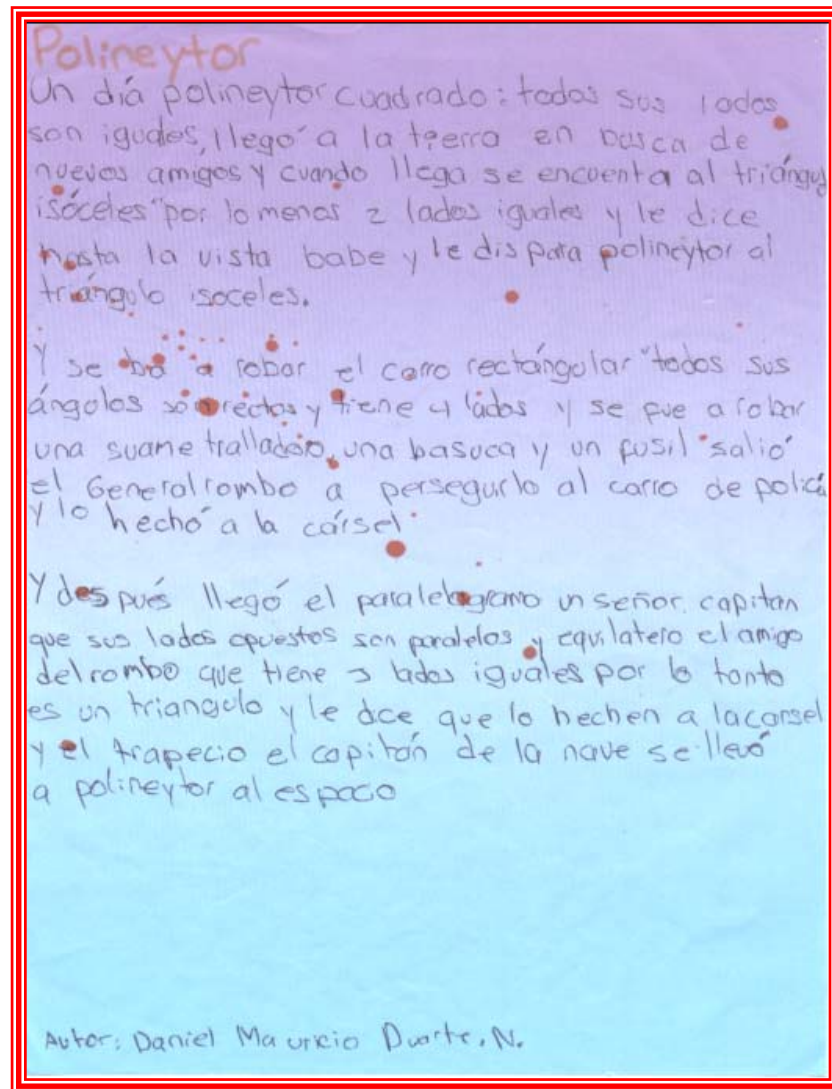 Polineytor
Un día polineytor cuadrado: todos sus lados
son iguales, llegó a la tierra en busca de
nuevos amigos y cuando llega se encuenta al triángu
isóceles "por lo menos 2 lados iguales y le dice
hasta la vista babe y le dispara polineytor al
triángulo isoceles.
Y se ba a robar el carro rectángular "todos sus
ángolos son rectos y tiene 4 lados y se fue a robar
una suame tralladora, una basuca y un fusil "salio
el General rombo a perseguirlo al carro de policía
y lo hechó a la cársel.
Y después llegó el paralelogramo un señor capitan
que sus lados opuestos son paralelos y equilatero el amigo
del rombo que tiene 3 lados iguales por lo tanto
es un triangulo y le dice que lo hechen a la carsel
y el trapecio el capitán de la nave se llevó
a polineytor al espacio
Autor: Daniel Mauricio Duarte. N.